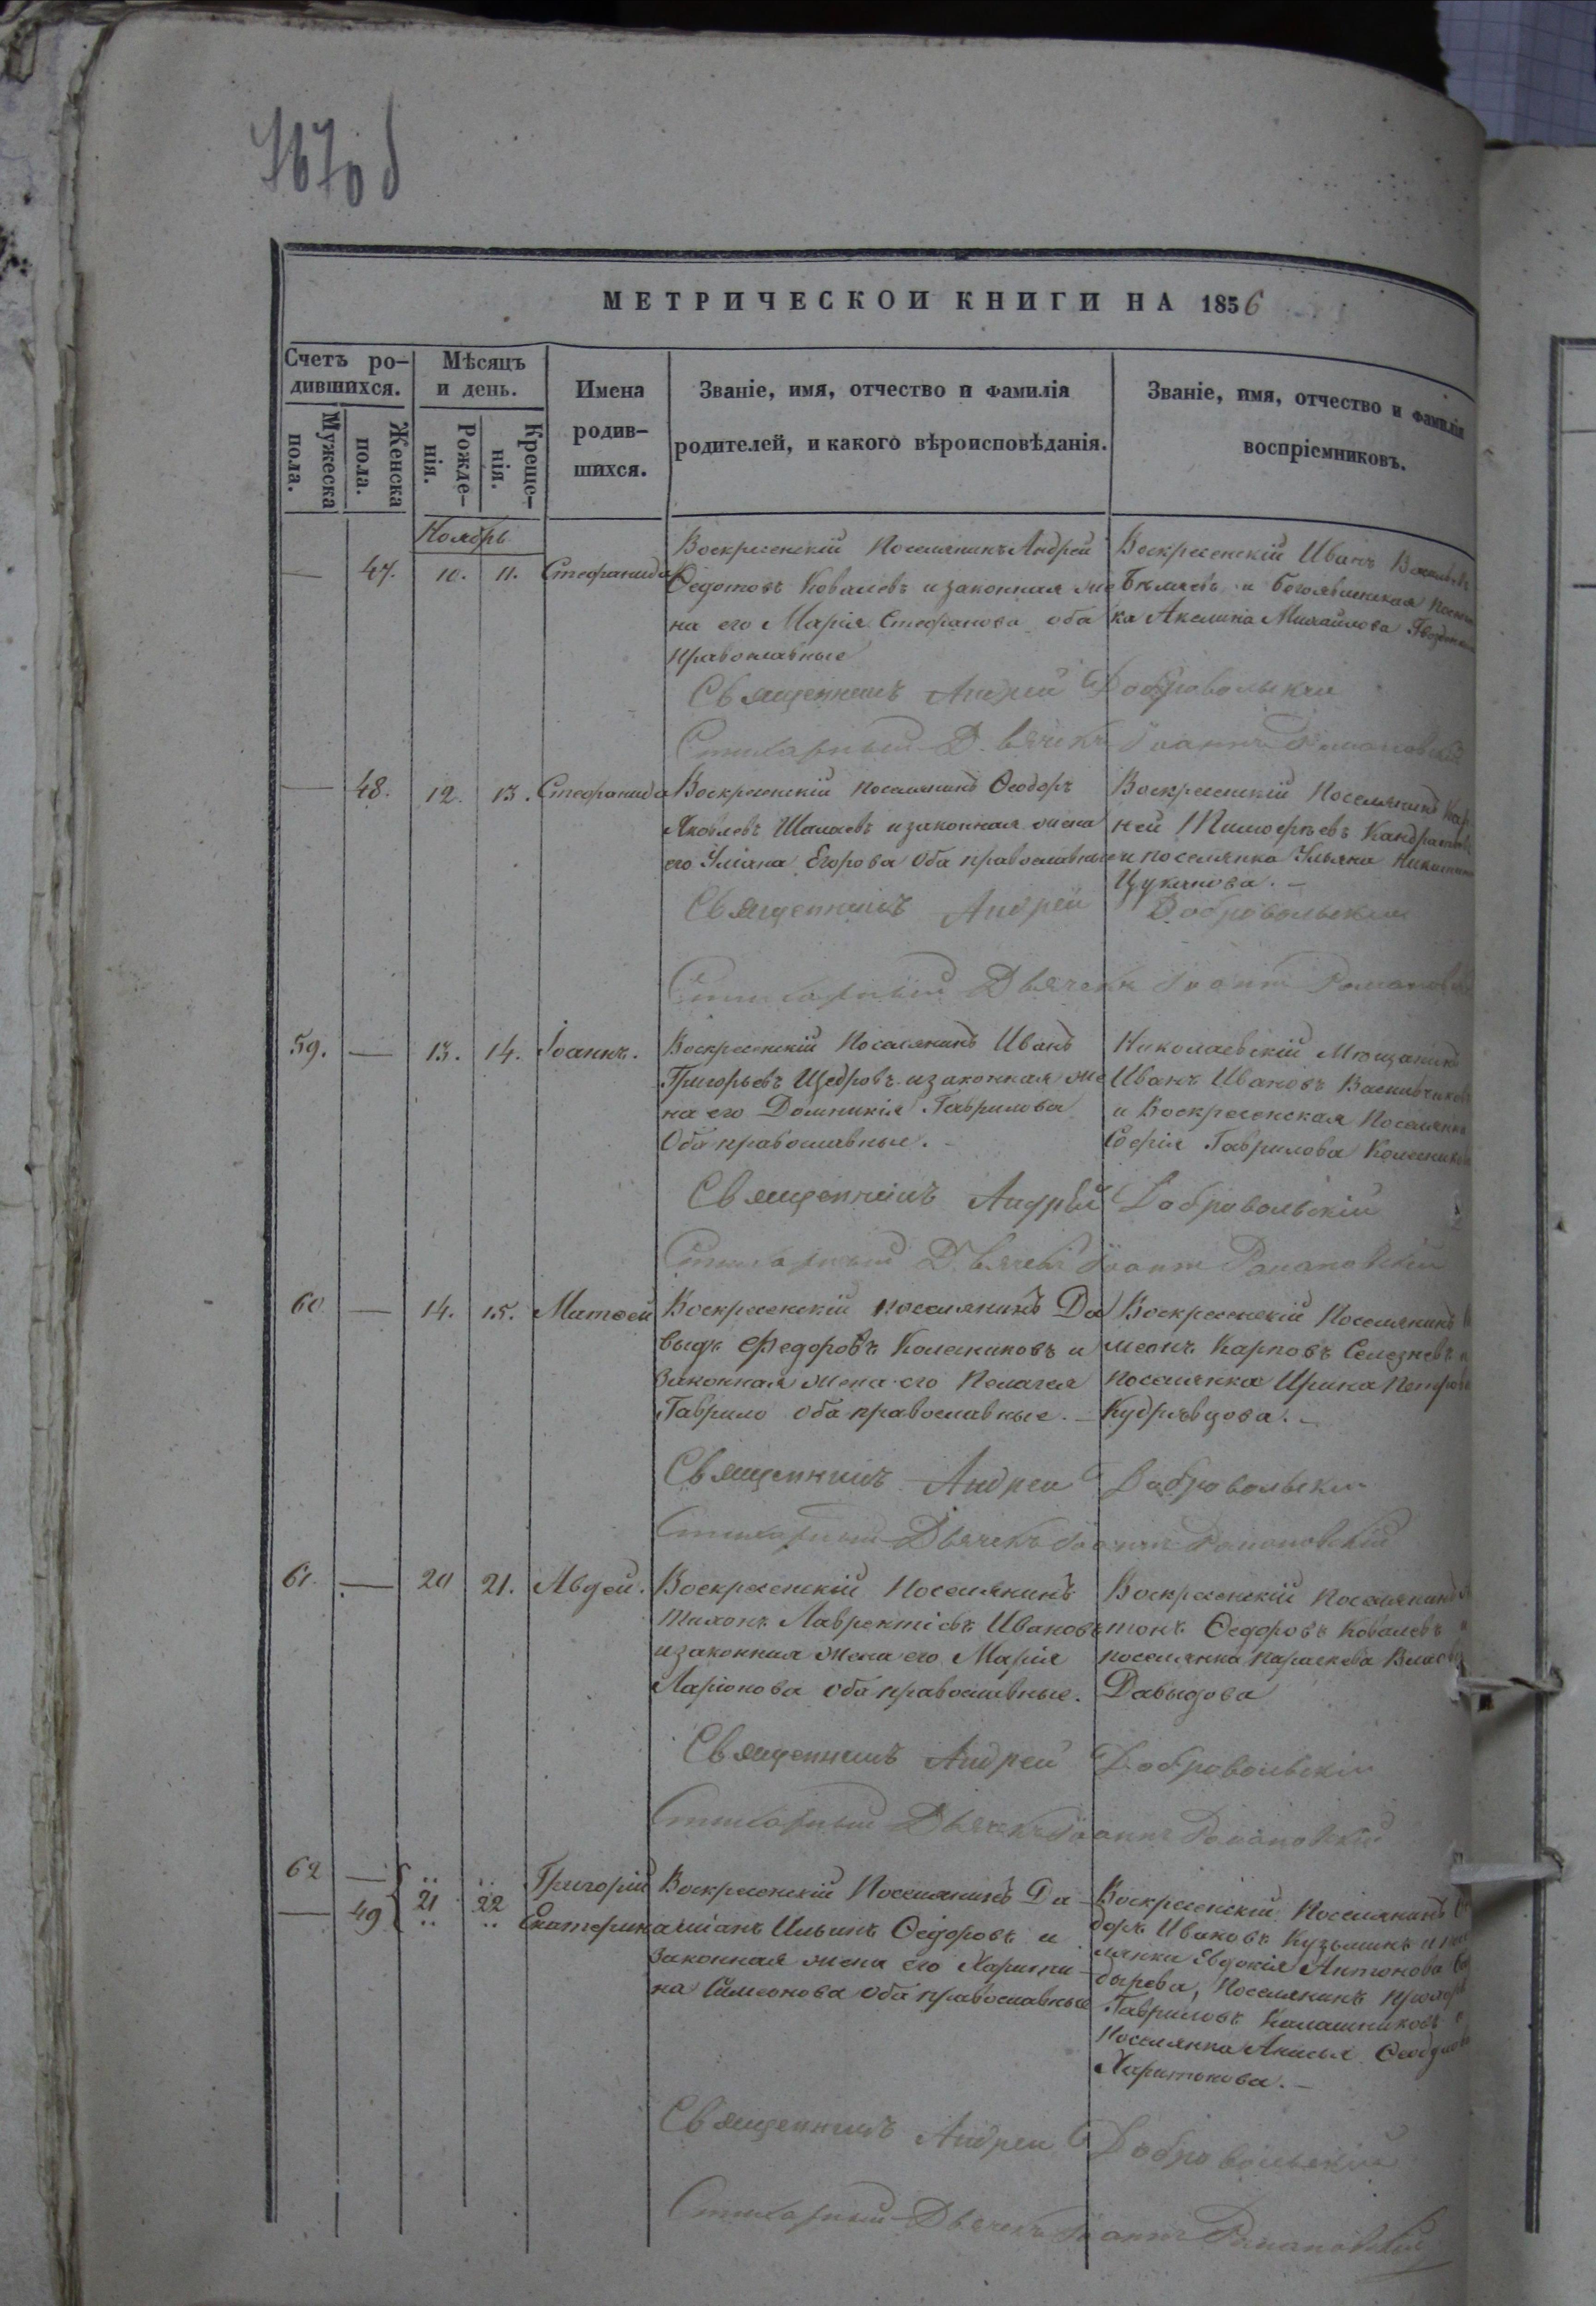 767об
МЕТРИЧЕСКОЙ КНИГИ НА 1856
Счетъ ро-
дившихся.
Мужеска
пола.
Женска
пола.
Мѣсяцъ
и день.
Рожде-
нія.
Креще-
нія.
Имена
родив-
шихся.
Званіе, имя, отчество и фамилія
родителей, и какого вѣроисповѣданія.
Званіе, имя, отчество и фамилія
воспріемниковъ.
Ноябрь
— 47. 10. 11. Стефанида
Воскресенскій Поселянинъ Андрей
Ѳедотовъ Ковалевъ и законная же
на его Марія Стефанова оба
православные
Воскресенскій Иванъ
и Богоявленская
ка Акелина Михайлова
Священникъ Андрей Добровольскій
Стихарный Дьячекъ Іоаннъ Романовскій
— 48. 12. 13. Стефанида
Воскресенскій поселянинъ Ѳеодоръ
Яковлевъ Шалаевъ и законная жена
его Уліяна Егорова оба православные
Воскресенскій Поселянинъ Кор
ней Тимофѣевъ Кандратов
и поселянка Ульяна Никитина
Цуканова. —
Священникъ Андрей Добровольскій
Стихарный Дьячекъ Іоаннъ Романовскій
59. — 13. 14. Іоаннъ.
Воскресенскій Поселянинъ Иванъ
Григорьевъ Щедровъ и законная же
на его Домникія Гаврилова
Оба православные. —
Николаевскій Мѣщанинъ
Иванъ Ивановъ Васильчиковъ
и Воскресенская Поселянка
Софія Гаврилова Колесникова
Священникъ Андрей Добровольскій
Стихарный Дьячекъ Іоаннъ Романовскій
60 — 14. 15. Матѳей
Воскресенскій поселянинъ Да
выдъ Федоровъ Колесниковъ и
Законная жена его Пелагея
Гаврило оба православные. —
Воскресенскій Поселянинъ
меонъ Карповъ Селезневъ и
поселянка Ирина Петрова
Кудрявцова. —
Священникъ Андрей Добровольскій
Стихарный Дьячекъ Іоаннъ Романовскій
61. — 20 21. Авдей.
Воскресенскій Поселянинъ
Тихонъ Лаврентіевъ Ивановъ
и законная жена его Марія
Ларіонова оба православные.
Воскресенскій поселянинъ
тонъ Ѳедоровъ Ковалевъ и
поселянка параскева Власова
Давыдова
Священникъ Андрей Добровольскій
Стихарный Дьячекъ Іоаннъ Романовскій
62 — Григорій
— 49 21 22 Екатерина
Воскресенскій Поселянинъ Да-
міанъ Ильинъ Ѳедоровъ и
Законная жена его Харити-
на Симеонова оба православные
Воскресенскій Поселянинъ Ѳе
доръ Ивановъ Кузьминъ и
лянки Евдокія Антонова
бырева, Поселянинъ Прохоръ
Гавриловъ Калашниковъ и
Поселянка Анисья
Харитонова. —
Священникъ Андрей Добровольскій
Стихарный Дьячекъ Іоаннъ Романовскій